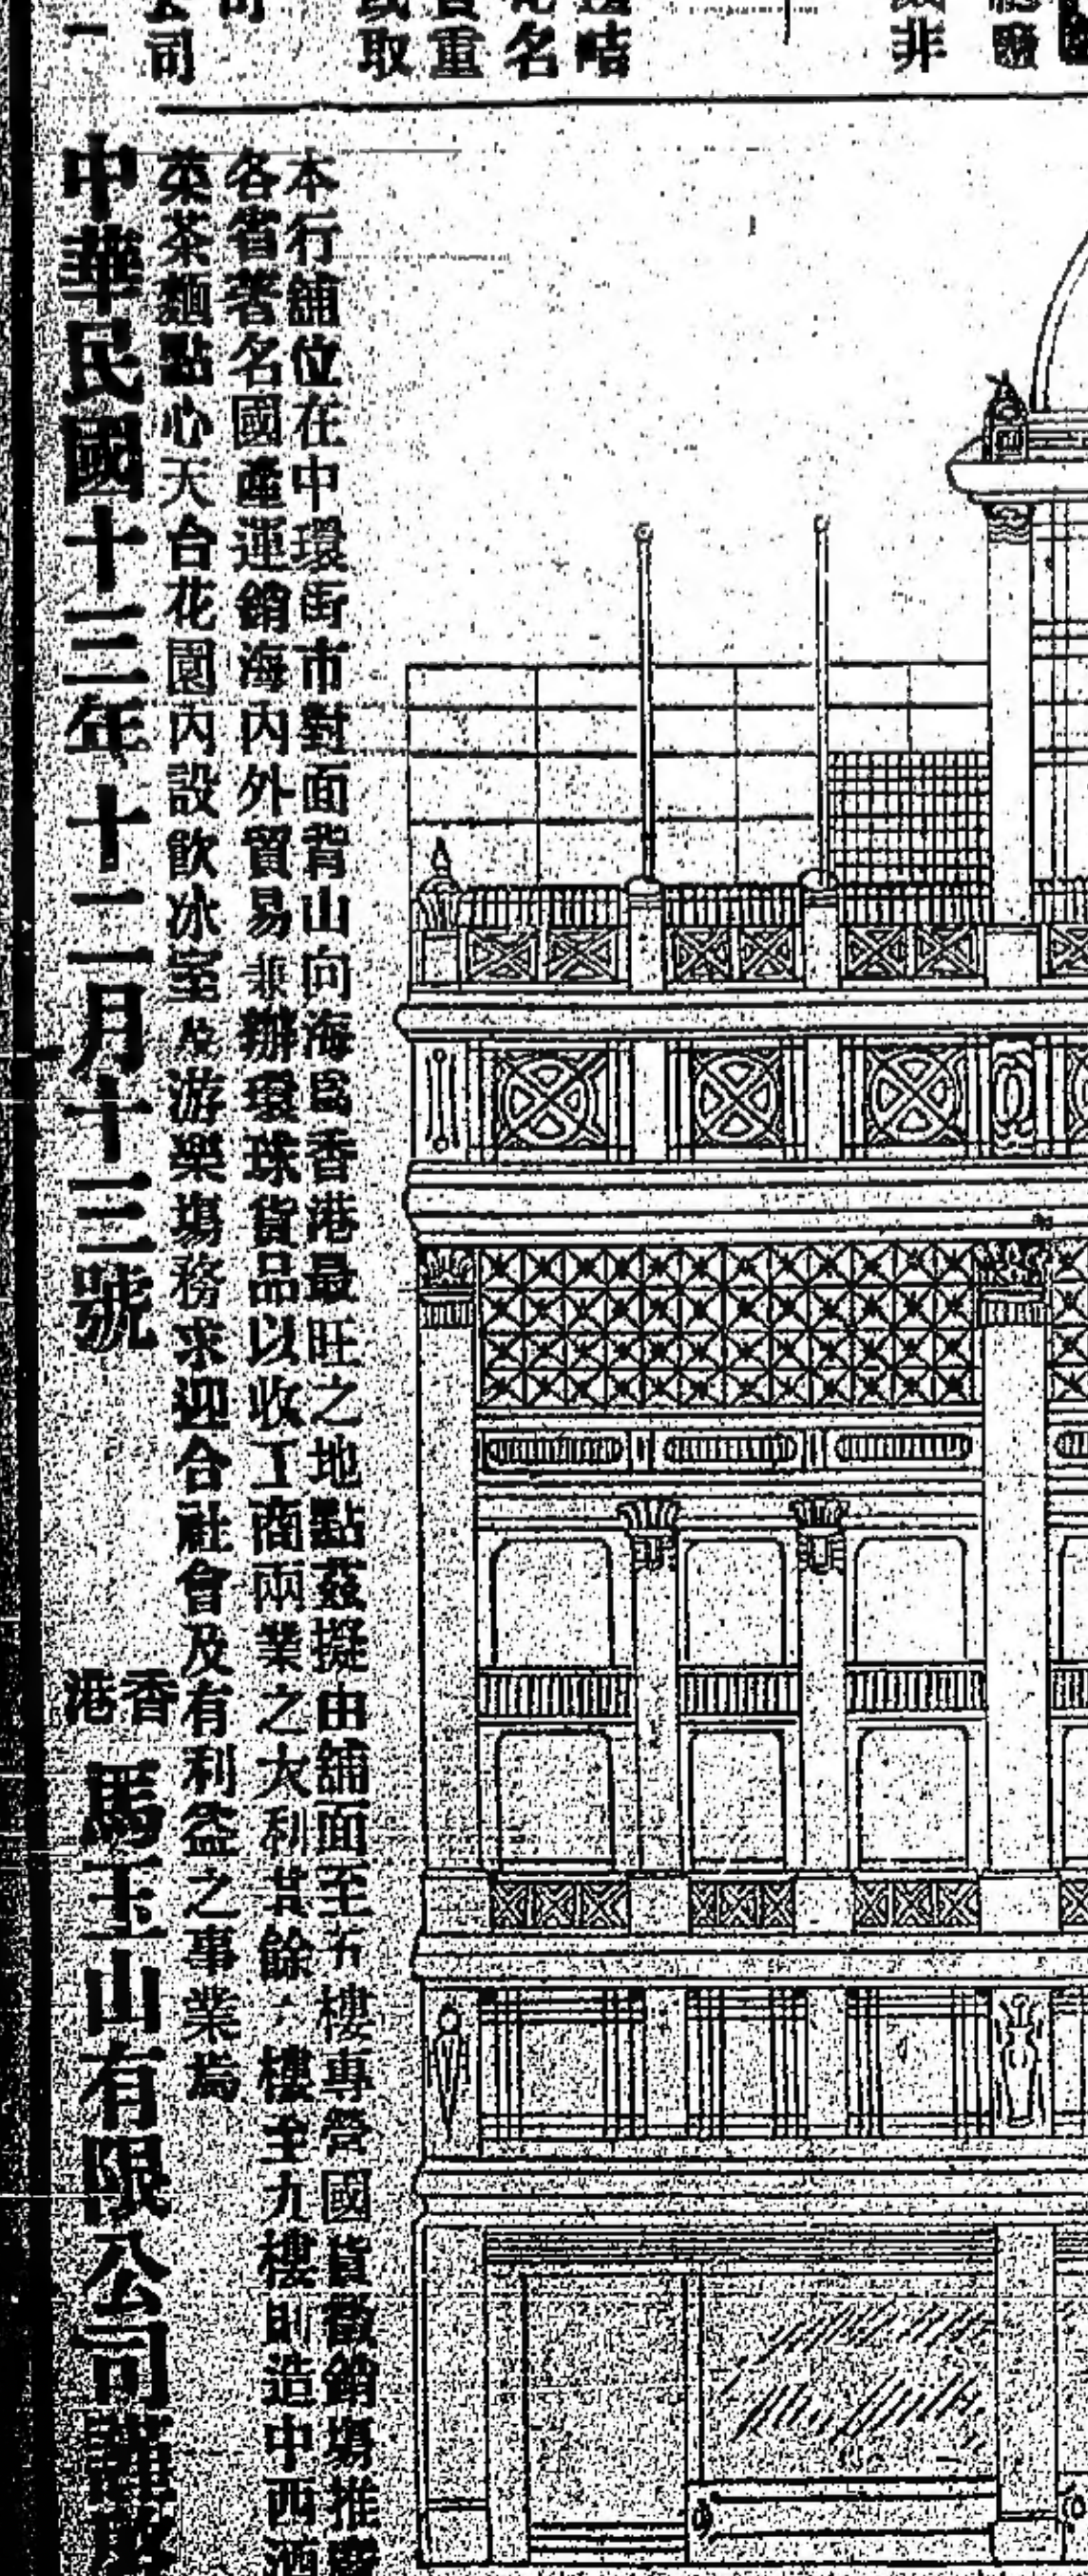 非
咭
名
重
取
司
本行舖位在中環街市對面背山向海爲香港最旺之地點茲擬由舖面至五樓專營國貨散銷塲推廣
各省著名國產運銷海內外貿易兼辦環球貨品以收工商兩業之大利其餘六樓至九樓則造中西酒
菜茶麵點心天台花園內設飲冰室及游樂塲務求迎合社會及有利益之事業焉
中華民國十三年十二月十三號
香港
馬玉山有限公司謹啟